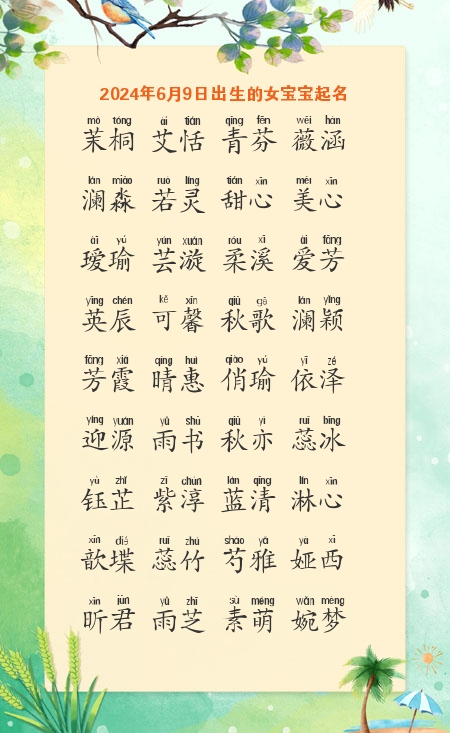 2024年6月9日出生的女宝宝起名
mò tóng ài tián qīng fēn wēi hán
茉桐 艾恬 青芬 薇涵
lán miǎo ruò líng tián xīn měi xīn
澜淼 若灵 甜心 美心
ài yú yún xuán róu xī ài fāng
瑷瑜 芸漩 柔溪 爱芳
yīng chén kě xīn qiū gē lán yǐng
英辰 可馨 秋歌 澜颖
fāng xiá qíng huì qiào yú yī zé
芳霞 晴惠 俏瑜 依泽
yíng yuán yǔ shū qiū yì ruǐ bīng
迎源 雨书 秋亦 蕊冰
yù zhǐ zǐ chún lán qīng lín xīn
钰芷 紫淳 蓝清 淋心
xīn dié ruǐ zhú sháo yǎ yà xī
歆堞 蕊竹 芍雅 娅西
xīn jūn yǔ zhī sù méng wǎn mèng
昕君 雨芝 素萌 婉梦